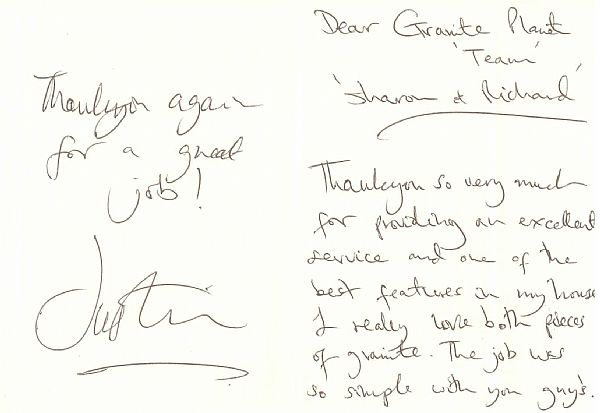 Thankyou again
for a great
job!
Justin
Dear Granite Planet
'Team'
'Sharon & Richard'
Thankyou so very much
for providing an excellent
service and one of the
best features in my house
I really love both pieces
of granite. The job was
so simple with you guy's.